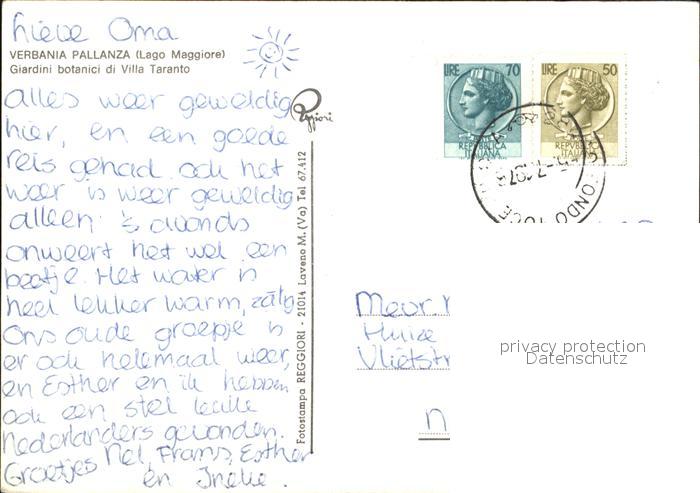 Lieve Oma
VERBANIA PALLANZA (Lago Maggiore)
Giardini botanici di Villa Taranto
alles weer geweldig
hier, en een goede
reis gehad. ook het
weer is weer geweldig
alleen 's avonds
onweert het wel een
beetje. Het water is
heel lekker warm, zalig
Ons oude groepje is
er ook helemaal weer,
en Esther en ik hebben
ook een stel leuke
Nederlanders gevonden.
Groetjes Nel, Frans, Esther
en Ineke.
Reggiori
Fotostampa REGGIORI - 21014 Laveno M. (Va) Tel 67.412
LIRE 70
REPVBBLICA
ITALIANA
LIRE 50
REPVBBLICA
ITALIANA
FONDOTOCE
Mevr.
Huize
Vlietstr
N
privacy protection
Datenschutz